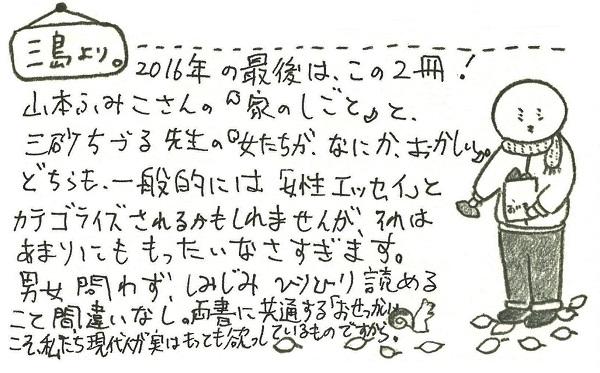 三島より。
2016年の最後は、この2冊！
山本ふみこさんの『家のしごと』と、
三砂ちづる先生の『女たちが、なにか、おかしい』。
どちらも、一般的には「女性エッセイ」と
カテゴライズされるかもしれませんが、それは
あまりにももったいなさすぎます。
男女問わず、しみじみひりひり読める
こと間違いなし。両書に共通する「おせっかい」
こそ、私たち現代人が実はもっとも欲っしているものですから。